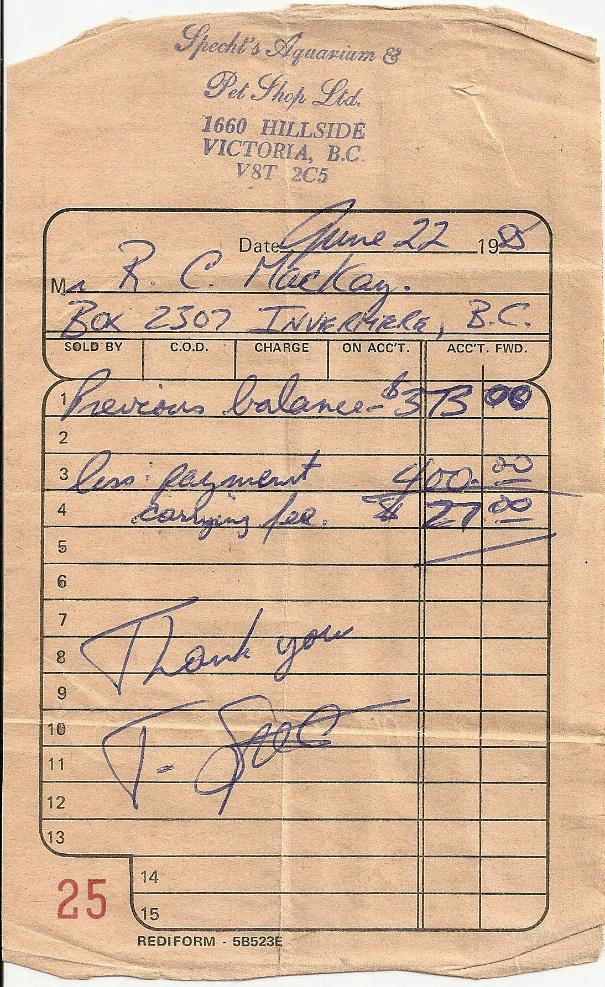 Specht's Aquarium &
Pet Shop Ltd.
1660 HILLSIDE
VICTORIA, B.C.
V8T 2C5
Date June 22 1985
Mr R. C. Mackay.
Box 2307 INVERMERE, B.C.
SOLD BY C.O.D. CHARGE ON ACC'T. ACC'T. FWD.
1 Previous balance - $ 373 00
2
3 less payment 400.00
4 carrying fee. $ 27 00
5
6
7
8 Thank you
9
10
11 T.
12
13
14
25
15
REDIFORM - 5B523E